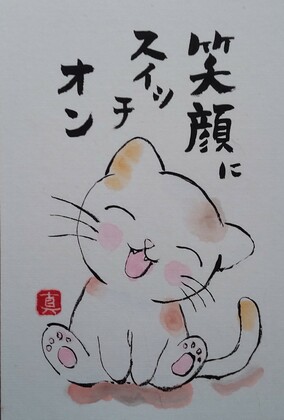 笑顔に
スイッチ
オン
真